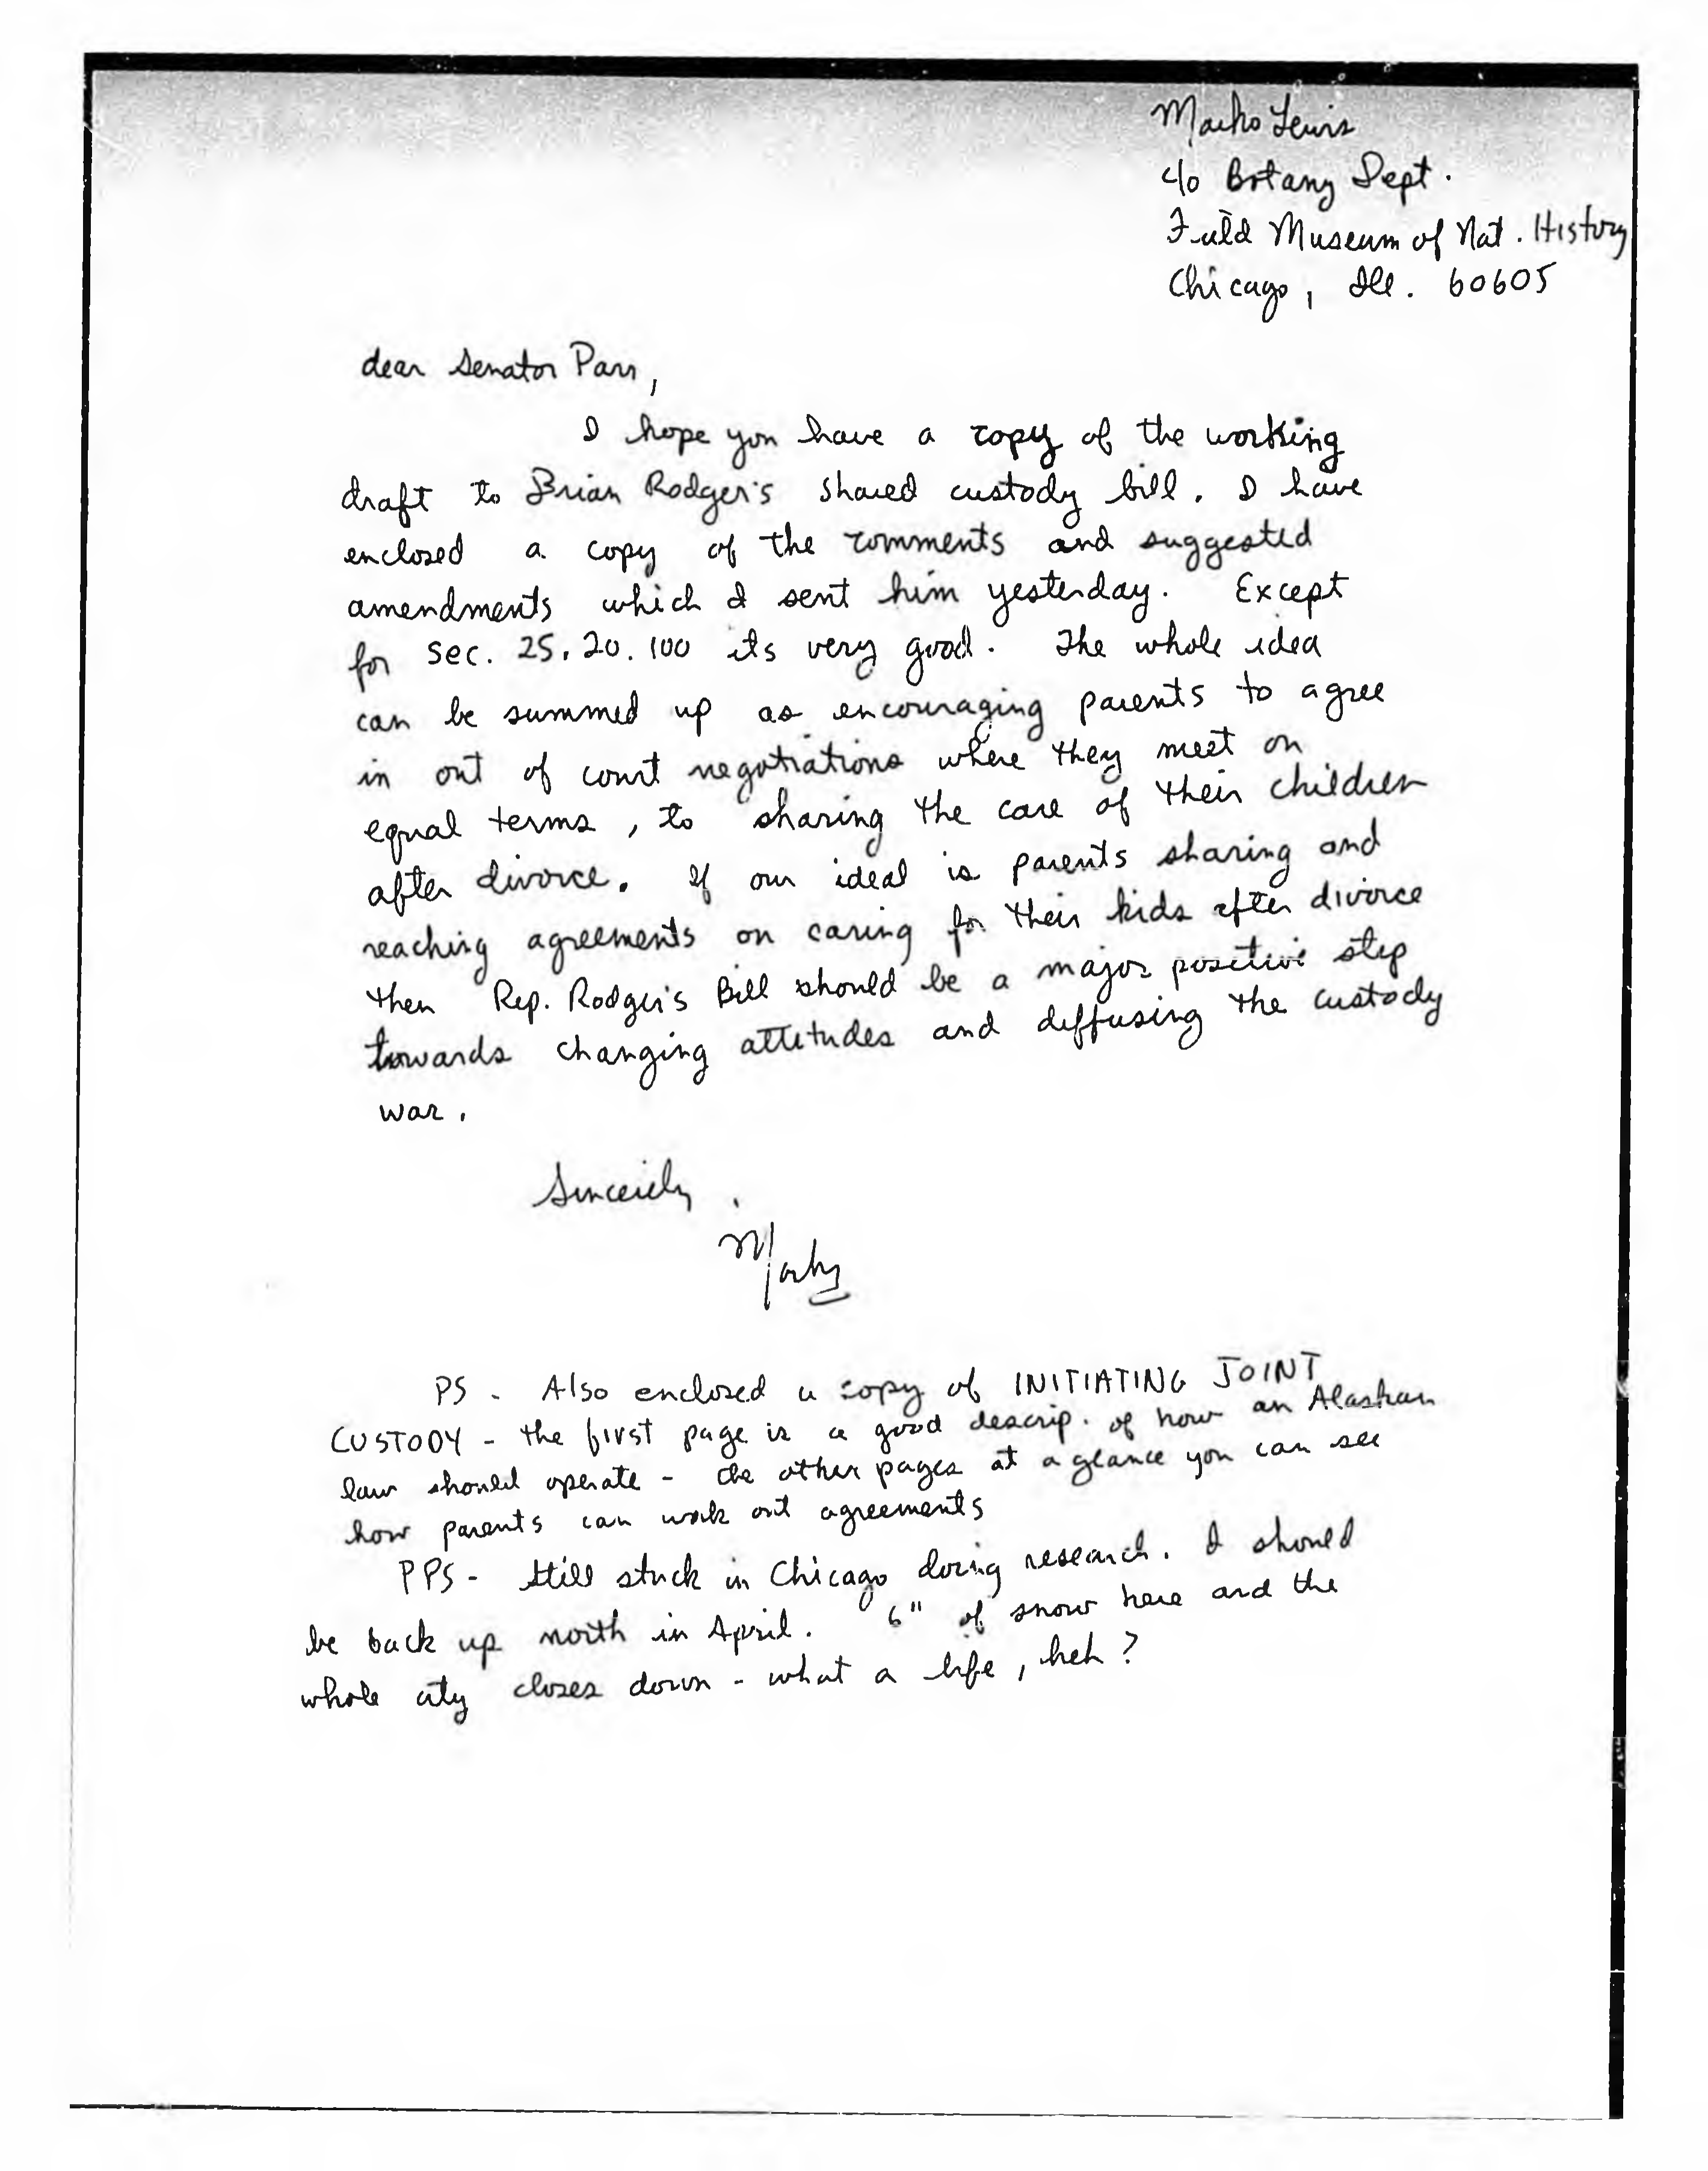 Marko Lewis
c/o Botany Dept.
Field Museum of Nat. History
Chicago, Ill. 60605
dear Senator Parr,
I hope you have a copy of the working
draft to Brian Rodger's shared custody bill. I have
enclosed a copy of the comments and suggested
amendments which I sent him yesterday. Except
for sec. 25.20.100 its very good. The whole idea
can be summed up as encouraging parents to agree
in out of court negotiations where they meet on
equal terms, to sharing the care of their children
after divorce. If our ideal is parents sharing and
reaching agreements on caring for their kids after divorce
then Rep. Rodger's Bill should be a major positive step
towards changing attitudes and diffusing the custody
war.
Sincerely,
Marko
PS - Also enclosed a copy of INITIATING JOINT
CUSTODY - the first page is a good descrip. of how an Alaskan
law should operate - the other pages at a glance you can see
how parents can work out agreements
PPS - Still stuck in Chicago doing research. I should
be back up north in April. 6" of snow here and the
whole city closes down - what a life, heh?